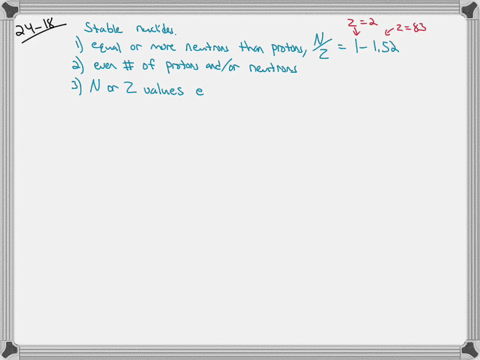 24-18
Stable nuclides.
z=2
z=83
1) equal or more neutrons than protons, N/Z = 1 - 1.52
2) even # of protons and/or neutrons
3) N or Z values e